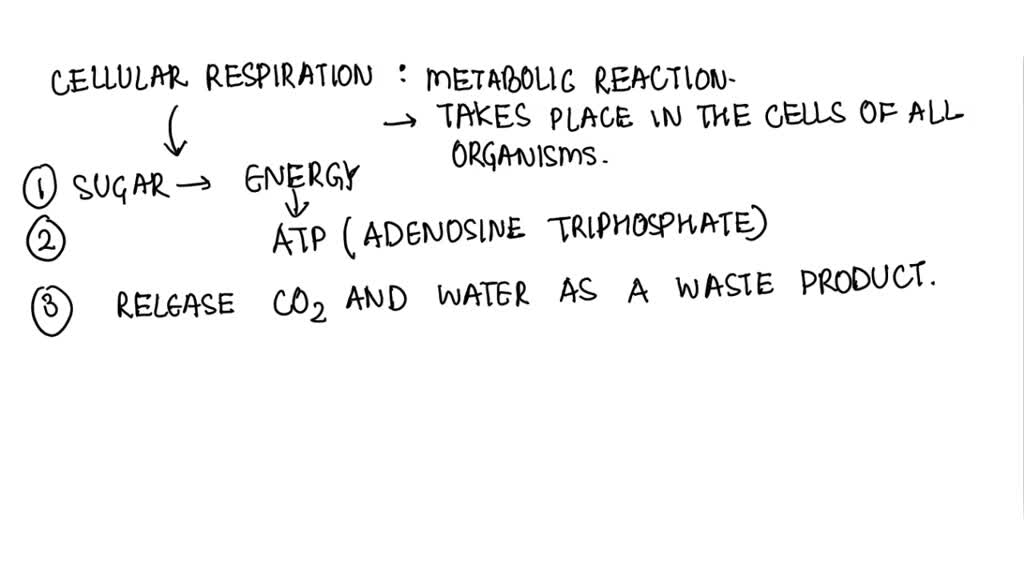 CELLULAR RESPIRATION : METABOLIC REACTION.
→ TAKES PLACE IN THE CELLS OF ALL
ORGANISMS.
① SUGAR → ENERGY
② ATP (ADENOSINE TRIPHOSPHATE)
③ RELEASE CO₂ AND WATER AS A WASTE PRODUCT.